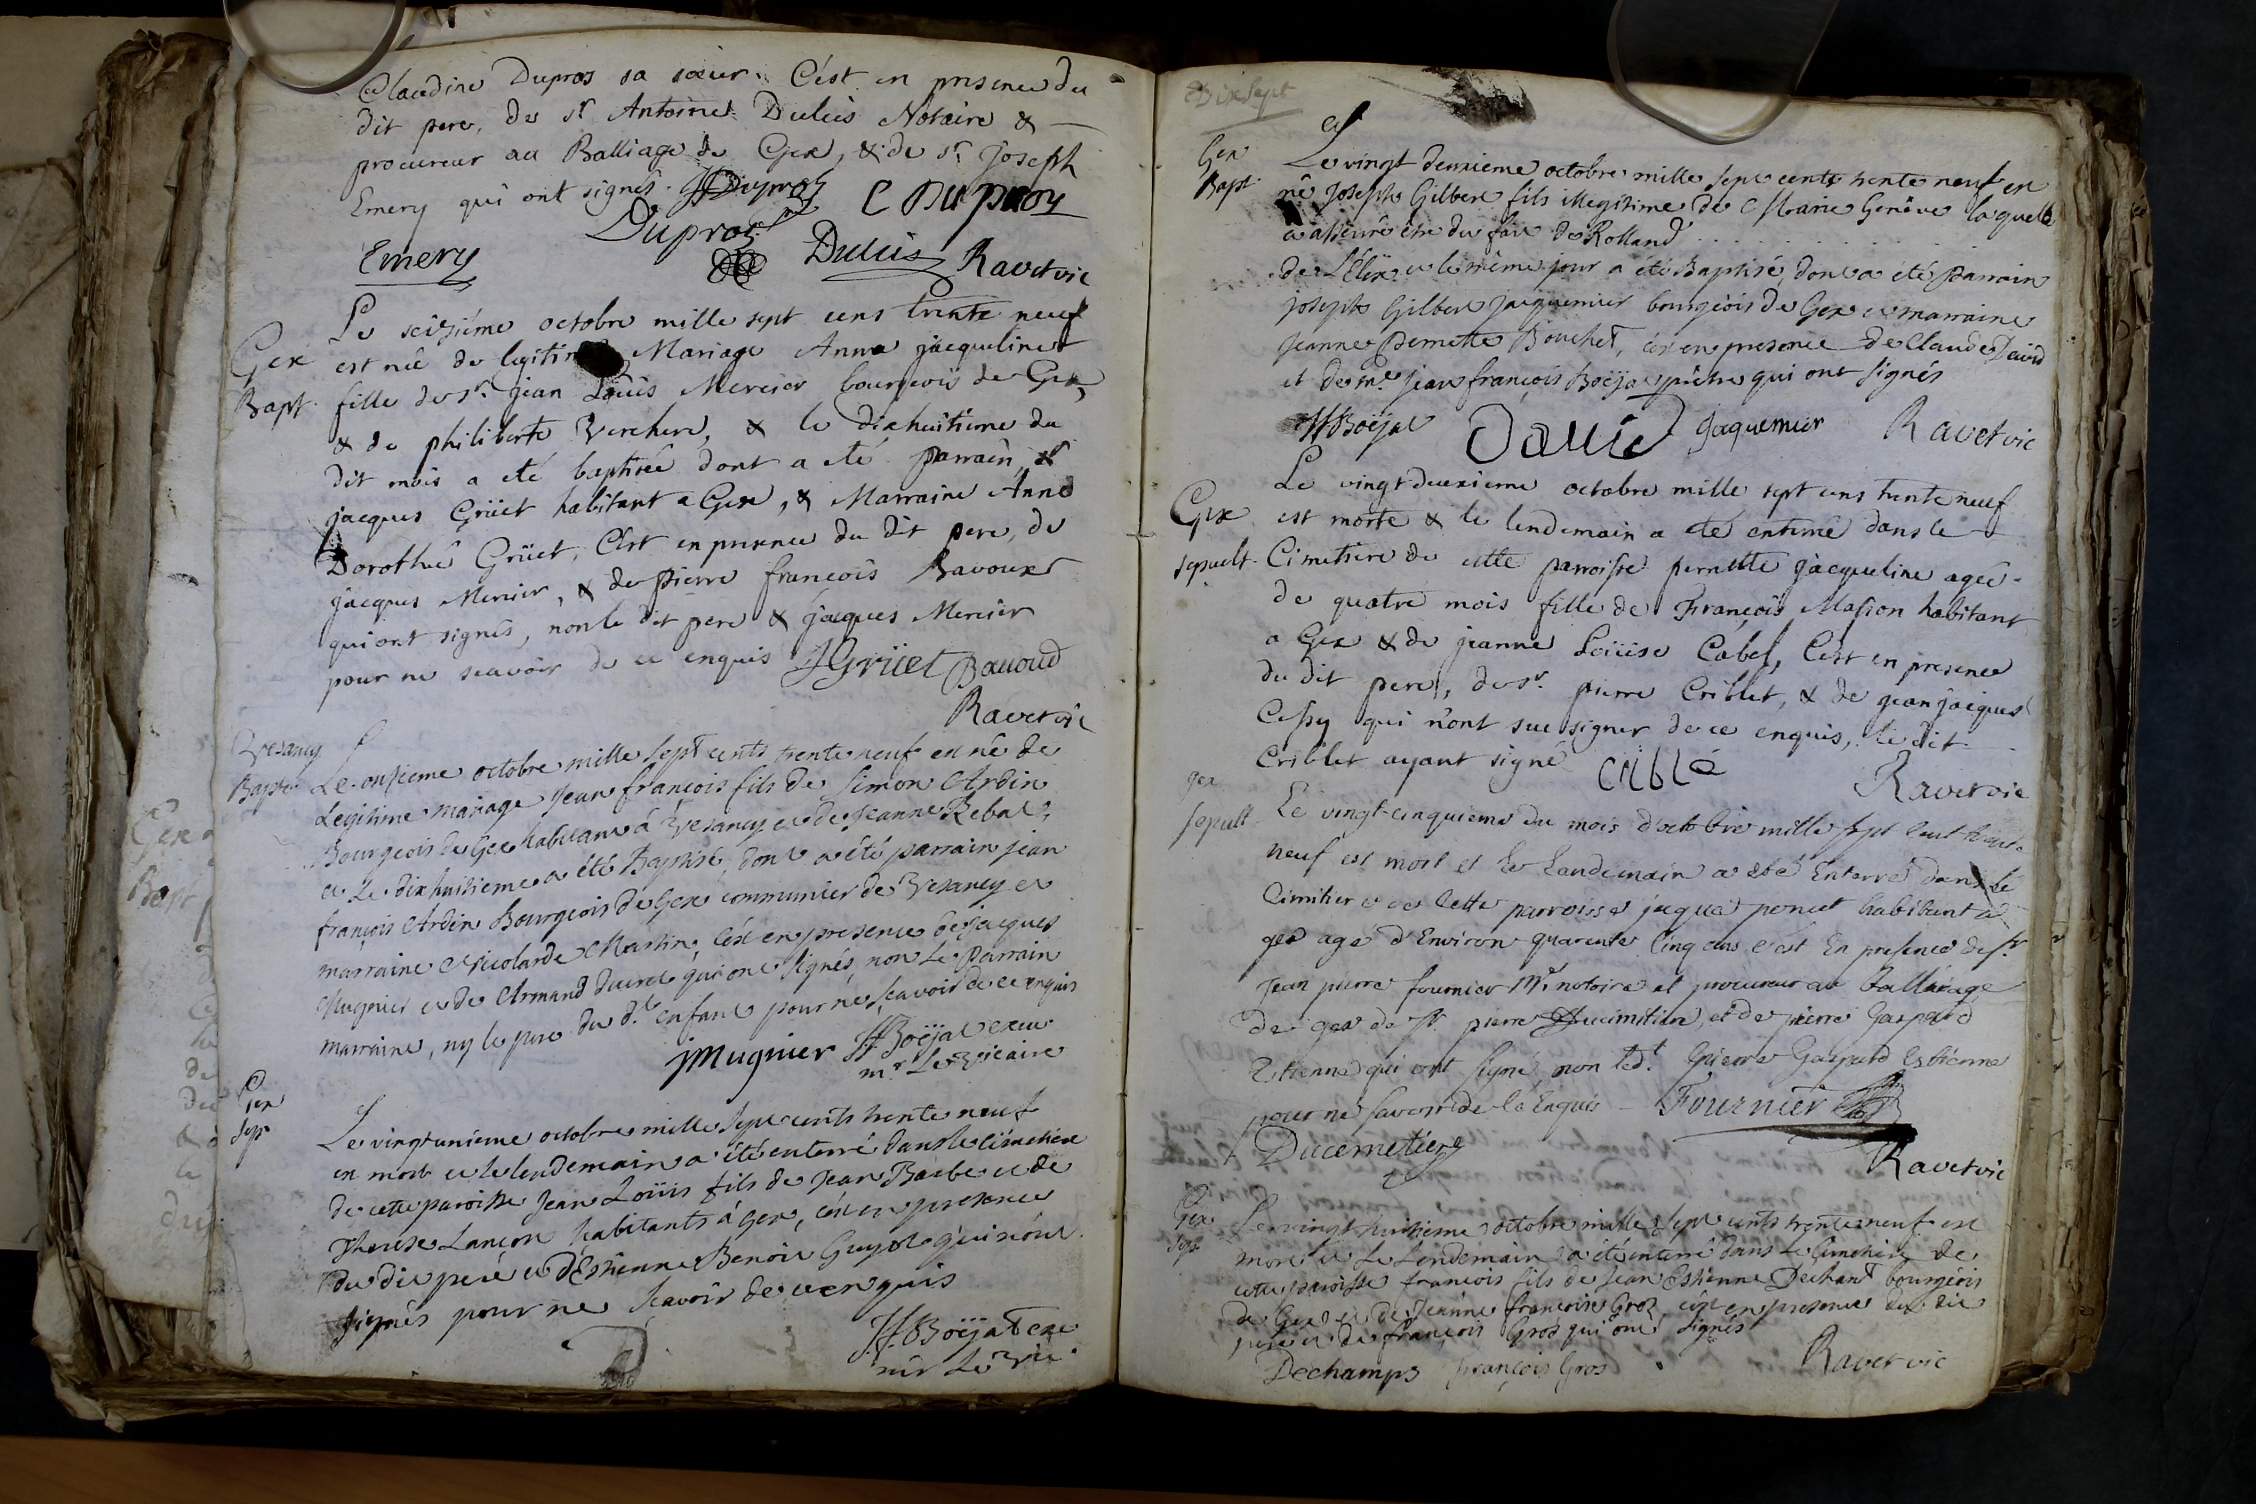 Claudine Dupros sa soeur. C'est en presence du
dit pere, de sr. Antoine Duluis Notaire &
procureur au Balliage de Gex, & de sr. Joseph
Emery qui ont signés. JDupros C Dupros
Dupros
Emery Duluis Ravet vic
Gex
Bapt.
Le seizième octobre mille sept cens trente neuf
est née de legitime Mariage Anne jacqueline
fille de sr. jean Loüis Mercier bourgeois de Gex
& de philiberte Verchere, & le dixhuitieme du
dit mois a eté baptisée dont a eté parrain sr
jacques Grüet habitant a Gex, & Marraine Anne
Dorothée Grüet, C'est en presence du dit pere, de
jacques Mercier, & de pierre françois Bavoux
qui ont signés, non le dit pere & jacques Mercier
pour ne scavoir de ce enquis JGrüet Bauoud
Ravet vic
Vesancy
Bapte.
Le onzieme octobre mille sept cents trente neuf est né de
Legitime mariage Jean françois fils de Simon Ardin
Bourgeois de Gex habitant à Vesancy et de Jeanne Rebat,
et le dixhuitieme a été Baptisé, dont a été parrain jean
françois Ardin Bourgeois de Gex communier de Vesancy et
marraine Nicolarde Martin, c'est en presence de jacques
Mugnier et de Armand Ducret qui ont signés, non le Parrain
marraine, ny le pere du dt. enfant pour ne scavoir de ce enquis
jMugnier JfBoëjat exeu
mr Le vicaire
Gex
Sep
Le vingt unieme octobre mille sept cents trente neuf
est mort et le lendemain a été enterré dans le cimetiere
de cette paroisse Jean Loüis fils de Jean Barbe et de
Therese Lançon habitants à Gex, c'est en presence
du dit pere et d'Estienne Benoit Guyot qui n'ont
signés pour ne scavoir de ce enquis
JfBoëjat exe
mr Le vic
Dix sept
Gex
Bapt.
Le vingt deuxieme octobre mille sept cents trente neuf est
né Joseph Gilbert fils illegitime de Marie Genêve laquelle
a assuré etre du fait de Rolland
de Lélex et le même jour a été Baptisé, dont a été parrain
joseph Gilbert jacquemier bourgeois de Gex et marraine
Jeanne Pernette Bouchet, c'est en presence de Claude David
et de mre. jean françois Boëjat pretre qui ont signés
JfBoëjat Dauid Jaquemier Ravet vic
Gex
sepult.
Le vingt deuxieme octobre mille sept cens trente neuf
est morte & le lendemain a eté enterrée dans le
Cimetiere de cette parroisse pernette jacqueline agée
de quatre mois fille de François Masson habitant
a Gex & de jeanne Loüise Cabel, C'est en presence
du dit pere, de sr. pierre Criblet, & de jean jacques
Cessy qui n'ont sue signer de ce enquis, le dit
Criblet ayant signé Criblé
Ravet vic
gex
sepult
Le vingt-cinquieme du mois d'octobre mille sept cent trente
neuf est mort et le Landemain a eté Enterré dans le
Cimitier de Cette parroisse jaque poncet habitant a
gex agé d'Environ quarente Cinq ans c'est En presence de sr
Jean pierre fournier Me notoire et procureur au Balliage
de gex de sr. pierre Ducimitier, et de pierre Gaspard
Etienne qui ont signé, non led. pierre Gaspard Estienne
pour ne savoir de Ce Enquis Fournier
Ducemetiere
Ravet vic
Gex
Sep
Le vingt huitieme octobre mille sept cents trente neuf est
mort et le Lendemain a été enterré dans le Cimetiere de
cette paroisse françois fils de Jean Estienne Dechant bourgeois
de Gex et de Jeanne françoise Groz, c'est en presence du dit
pere et de françois Gros qui ont signés
Dechamps françois Gros Ravet vic